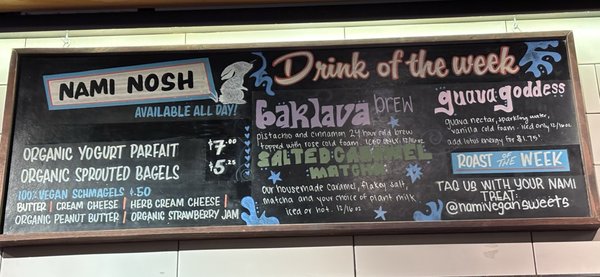 NAMI NOSH
AVAILABLE ALL DAY!
ORGANIC YOGURT PARFAIT $7.00
ORGANIC SPROUTED BAGELS $5.25
100% VEGAN SCHMAGELS $.50
BUTTER | CREAM CHEESE | HERB CREAM CHEESE |
ORGANIC PEANUT BUTTER | ORGANIC STRAWBERRY JAM
Drink of the week
baklava brew
pistachio and cinnamon 24 hour cold brew
topped with rose cold foam. ICED ONLY 12/16oz
SALTED CARAMEL
MATCHA
our housemade caramel, flakey salt,
matcha and your choice of plant milk
iced or hot. 12/16 oz
guava goddess
guava nectar, sparkling water,
vanilla cold foam - iced only 12/16oz
add lotus energy for $1.75!
ROAST of the WEEK
TAG US WITH YOUR NAMI
TREAT:
@namivegansweets